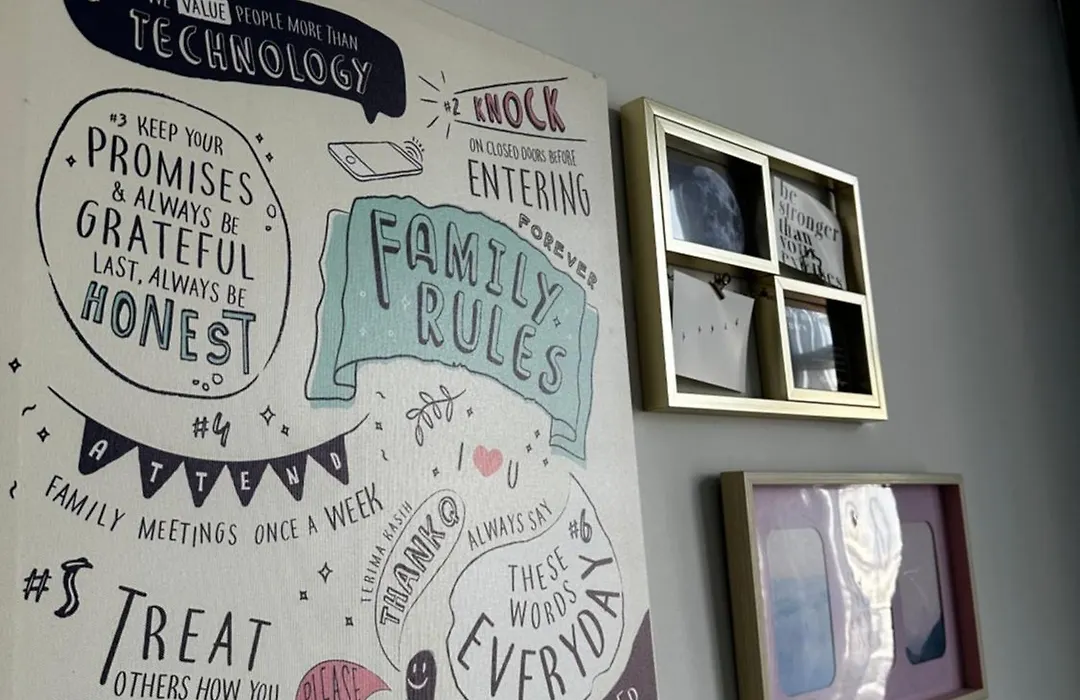 WE VALUE PEOPLE MORE THAN
TECHNOLOGY
#2 KNOCK
ON CLOSED DOORS BEFORE
ENTERING
#3 KEEP YOUR
PROMISES
& ALWAYS BE
GRATEFUL
LAST, ALWAYS BE
HONEST
FOREVER
FAMILY
RULES
#4
ATTEND
FAMILY MEETINGS ONCE A WEEK
I U
#5
TREAT
OTHERS HOW YOU
PLEASE
TERIMA KASIH
THANK Q
ALWAYS SAY
#6
THESE
WORDS
EVERYDAY
be
stronger
than
your